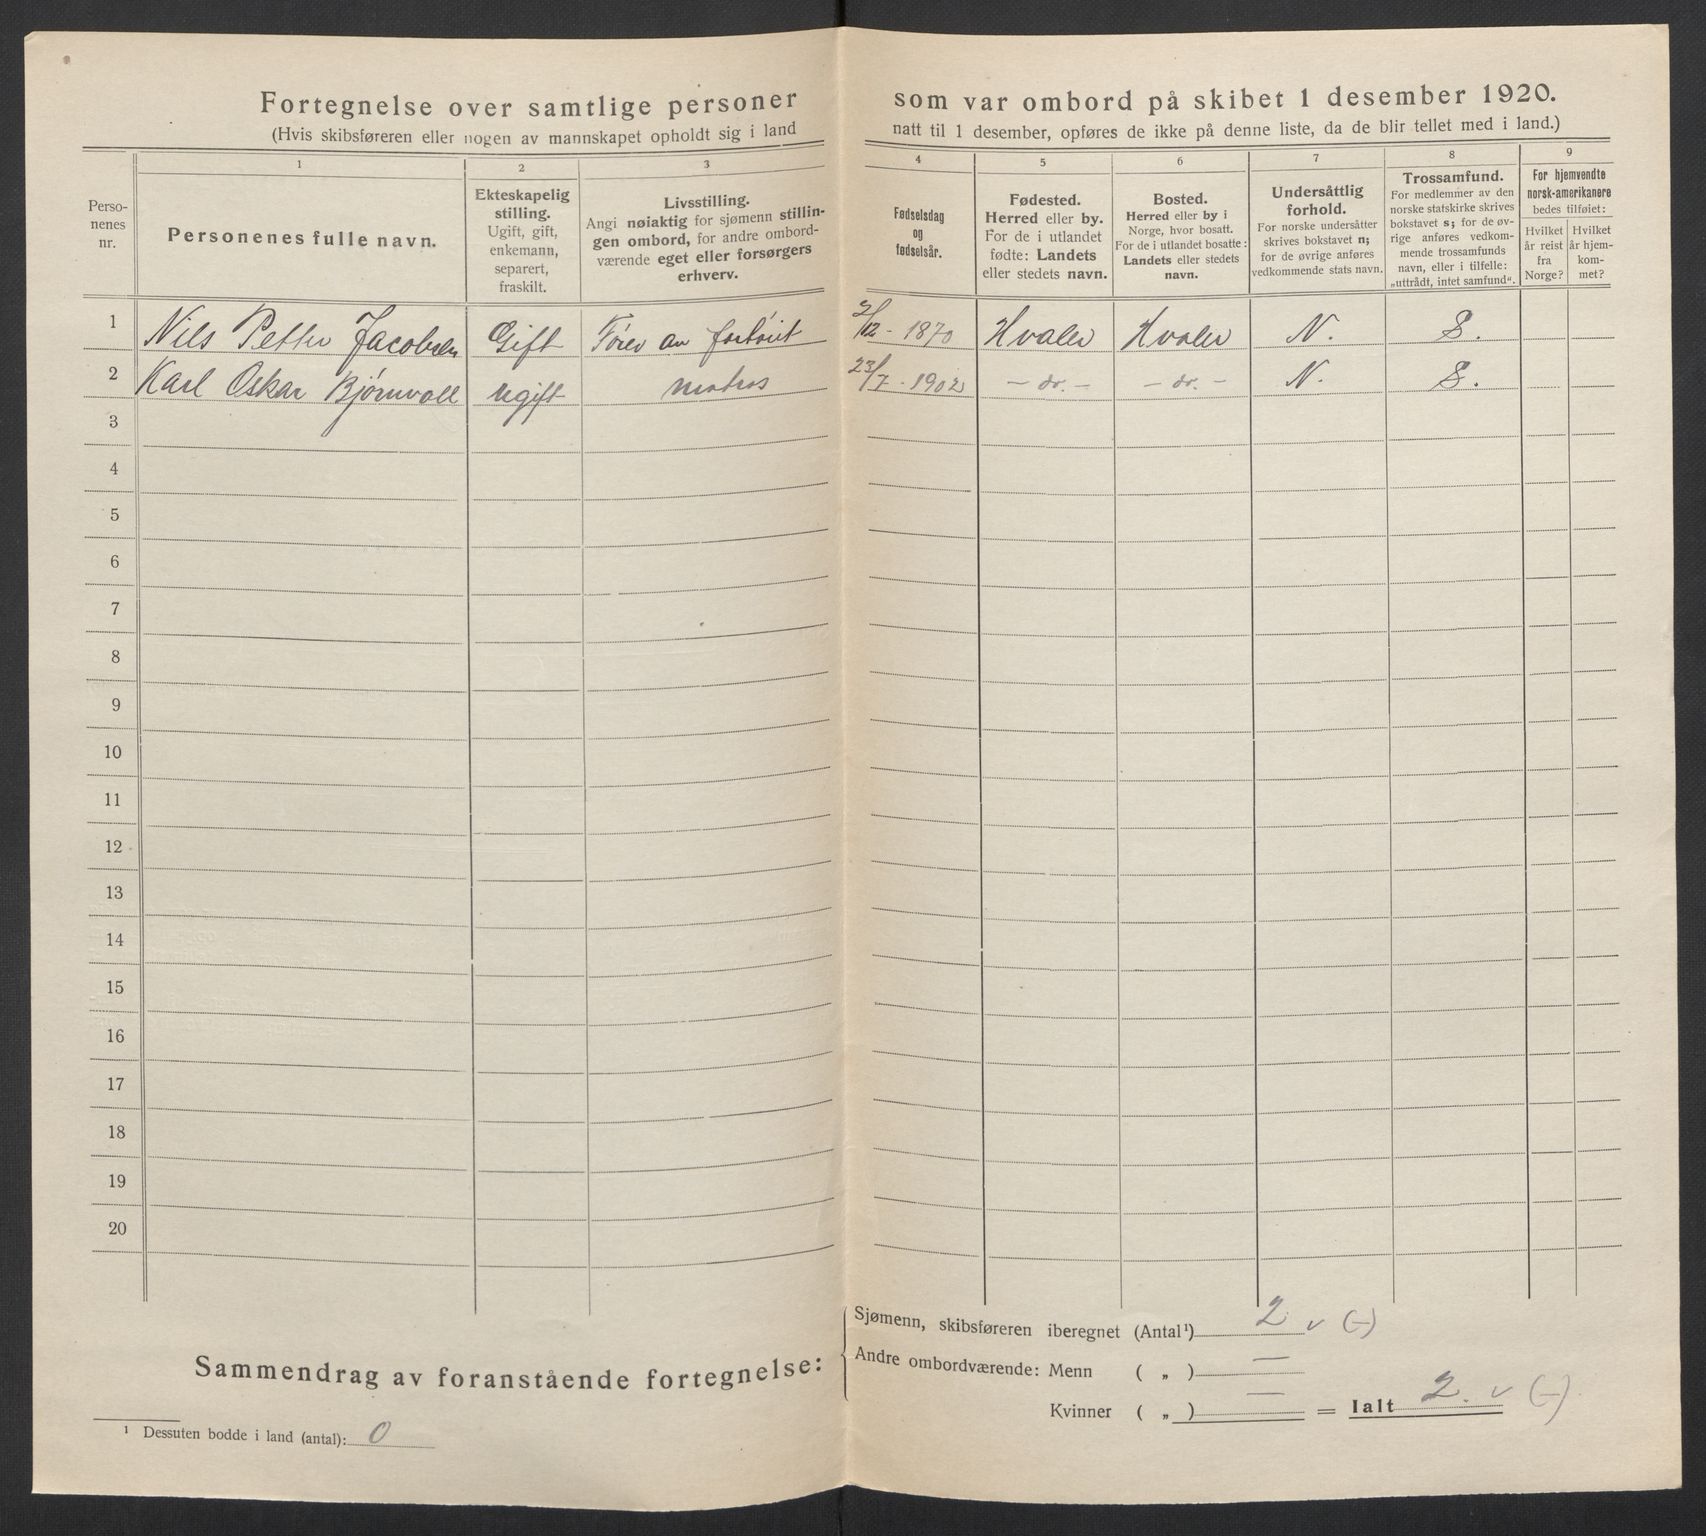 Fortegnelse over samtlige personer som var ombord på skibet 1 desember 1920.
(Hvis skibsføreren eller nogen av mannskapet opholdt sig i land natt til 1 desember, opføres de ikke på denne liste, da de blir tellet med i land.)
1 2 3 4 5 6 7 8 9
Personenes nr.
Personenes fulle navn.
Ekteskapelig stilling.
Ugift, gift,
enkemann,
separert,
fraskilt.
Livsstilling.
Angi nøiaktig for sjømenn stillin-
gen ombord, for andre ombord-
værende eget eller forsørgers
erhverv.
Fødselsdag
og
fødselsår.
Fødested.
Herred eller by.
For de i utlandet
fødte: Landets
eller stedets navn.
Bosted.
Herred eller by i
Norge, hvor bosatt.
For de i utlandet bosatte:
Landets eller stedets
navn.
Undersåttlig
forhold.
For norske undersåtter
skrives bokstavet n;
for de øvrige anføres
vedkommende stats navn.
Trossamfund.
For medlemmer av den
norske statskirke skrives
bokstavet s; for de øv-
rige anføres vedkom-
mende trossamfunds
navn, eller i tilfelle:
„uttrådt, intet samfund“.
For hjemvendte
norsk-amerikanere
bedes tilføiet:
Hvilket
år reist
fra
Norge?
Hvilket
år hjem-
kom-
met?
1 Nils Petter Jacobsen Gift Fører av fartøit 2/12 - 1870 Hvaler Hvaler N. S.
2 Karl Oskar Bjørnvall Ugift matros 23/7 - 1902 - do. - - do. - N. S.
3
4
5
6
7
8
9
10
11
12
13
14
15
16
17
18
19
20
Sammendrag av foranstående fortegnelse:
Sjømenn, skibsføreren iberegnet (Antal¹) 2 v (-)
Andre ombordværende: Menn ( „ ) —
Kvinner ( „ ) — = Ialt 2. v (-)
¹ Dessuten bodde i land (antal): 0